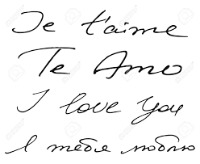 Je t'aime
Te Amo
I love You
Я тебя люблю